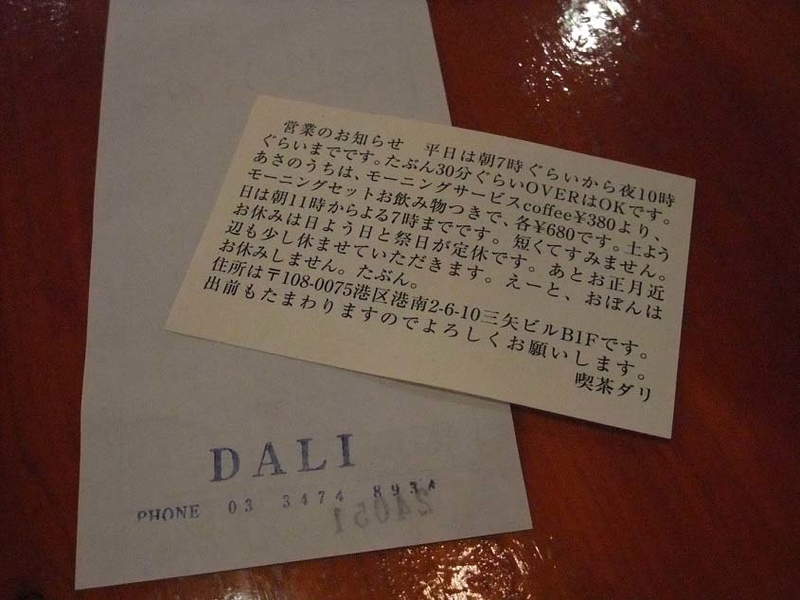 営業のお知らせ　平日は朝7時ぐらいから夜10時
ぐらいまでです。たぶん30分ぐらいOVERはOKです。
あさのうちは、モーニングサービスcoffee¥380より、
モーニングセットお飲み物つきで、各¥680です。土よう
日は朝11時からよる7時までです。短くてすみません。
お休みは日よう日と祭日が定休です。あとお正月近
辺も少し休ませていただきます。えーと、おぼんは
お休みしません。たぶん。
住所は〒108-0075港区港南2-6-10三矢ビルB1Fです。
出前もたまわりますのでよろしくお願いします。
喫茶ダリ
DALI
PHONE 03 3474 8934
24051